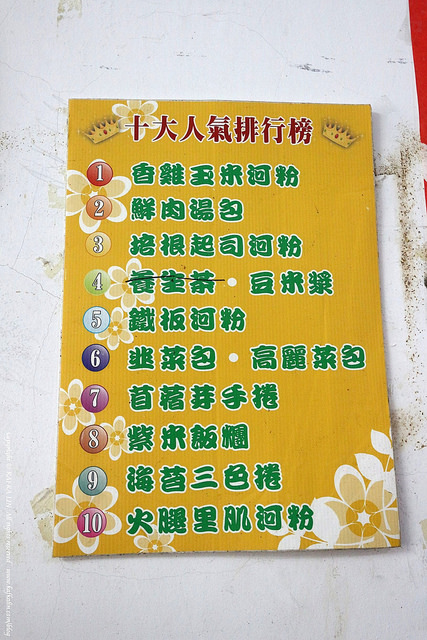 十大人氣排行榜
1 香雞玉米河粉
2 鮮肉湯包
3 培根起司河粉
4 養生茶・豆米漿
5 鐵板河粉
6 韭菜包・高麗菜包
7 苜蓿芽手捲
8 紫米飯糰
9 海苔三色捲
10 火腿里肌河粉